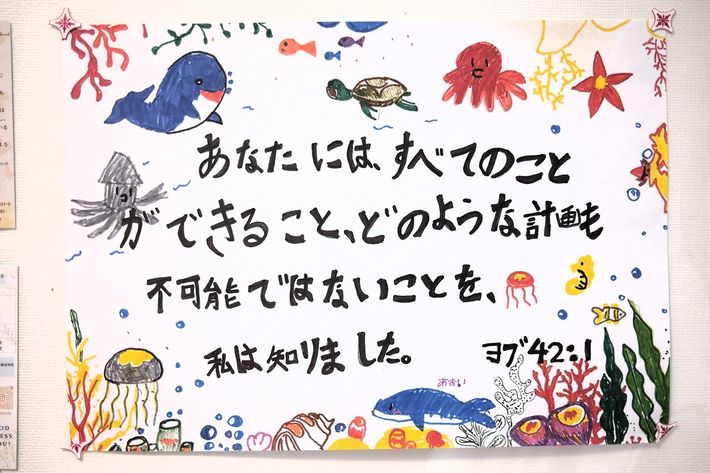 あなたには、すべてのこと
ができること、どのような計画も
不可能ではないことを、
私は知りました。 ヨブ42:1
あおい